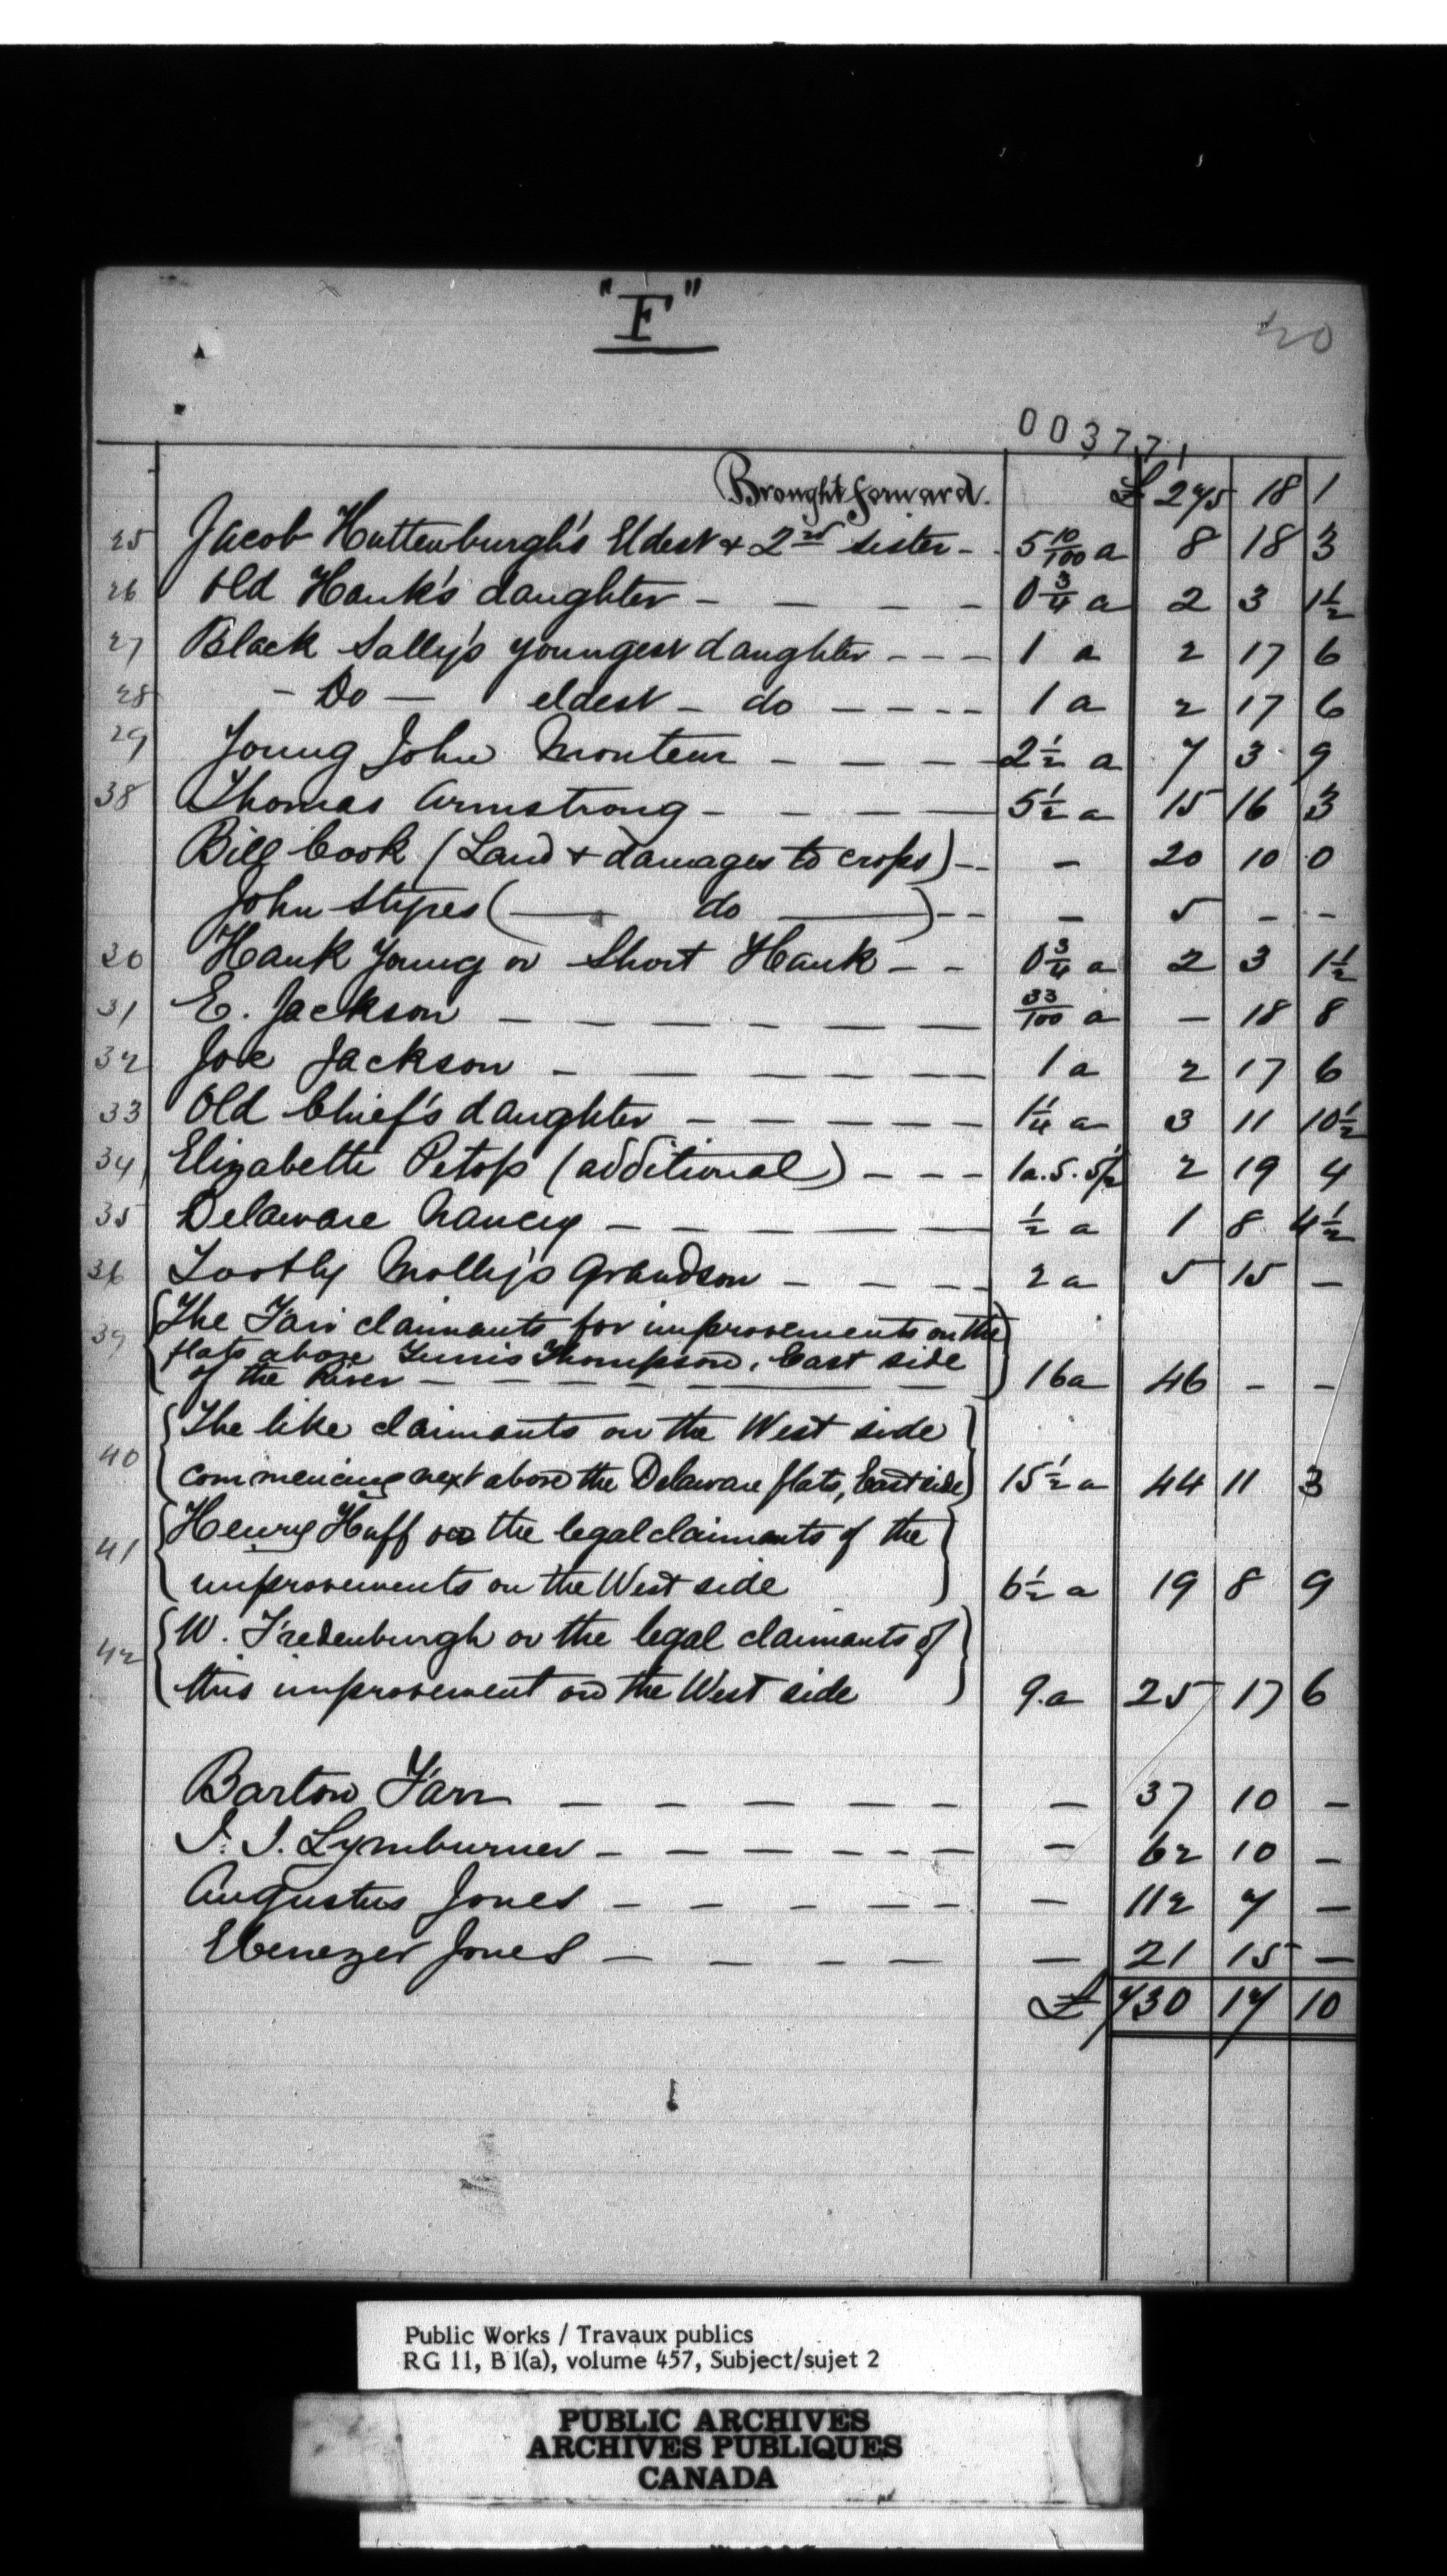 "F"
20
003771
Brought forward. £ 275 18 1
25 Jacob Huttenburgh's Eldest & 2nd sister - - 5 10/100 a 8 18 3
26 Old Hank's daughter - - - - 0 3/4 a 2 3 1 1/2
27 Black Sally's youngest daughter - - - 1 a 2 17 6
28 - Do - eldest - do - - - - 1 a 2 17 6
29 Young John Monteur - - - - 2 1/2 a 7 3 9
38 Thomas Armstrong - - - - 5 1/2 a 15 16 3
Bill Cook (Land & damages to crops) - - - 20 10 0
John Stypes (— do —) - - - 5 - -
30 Hank Young or Short Hank - - 0 3/4 a 2 3 1 1/2
31 E. Jackson - - - - - - - 33/100 a - 18 8
32 Joe Jackson - - - - - - 1 a 2 17 6
33 Old Chief's daughter - - - - - 1 1/4 a 3 11 10 1/2
34 Elizabeth Petop (additional) - - - 1a. 5. 5 1/2 2 19 4
35 Delaware Nancy - - - - - 1/2 a 1 8 4 1/2
36 Molly's Grandson - - - - 2 a 5 15 -
39 The Farr claimants for improvements on the
flats above Thompson, East side
of the River - - - - - - 16a 46 - -
40 The like claimants on the West side
commencing next above the Delaware flats, East side 15 1/2 a 44 11 3
41 Henry Huff or the legal claimants of the
improvements on the West side 6 1/2 a 19 8 9
42 W. Fredenburgh or the legal claimants of
this improvement on the West side 9.a 25 17 6
Barton Farr - - - - - - 37 10 -
Lymburner - - - - - - - 62 10 -
Augustus Jones - - - - - - 112 7 -
Ebenezer Jones - - - - - - 21 15 -
£ 730 17 10
Public Works / Travaux publics
RG 11, B 1(a), volume 457, Subject/sujet 2
PUBLIC ARCHIVES
ARCHIVES PUBLIQUES
CANADA